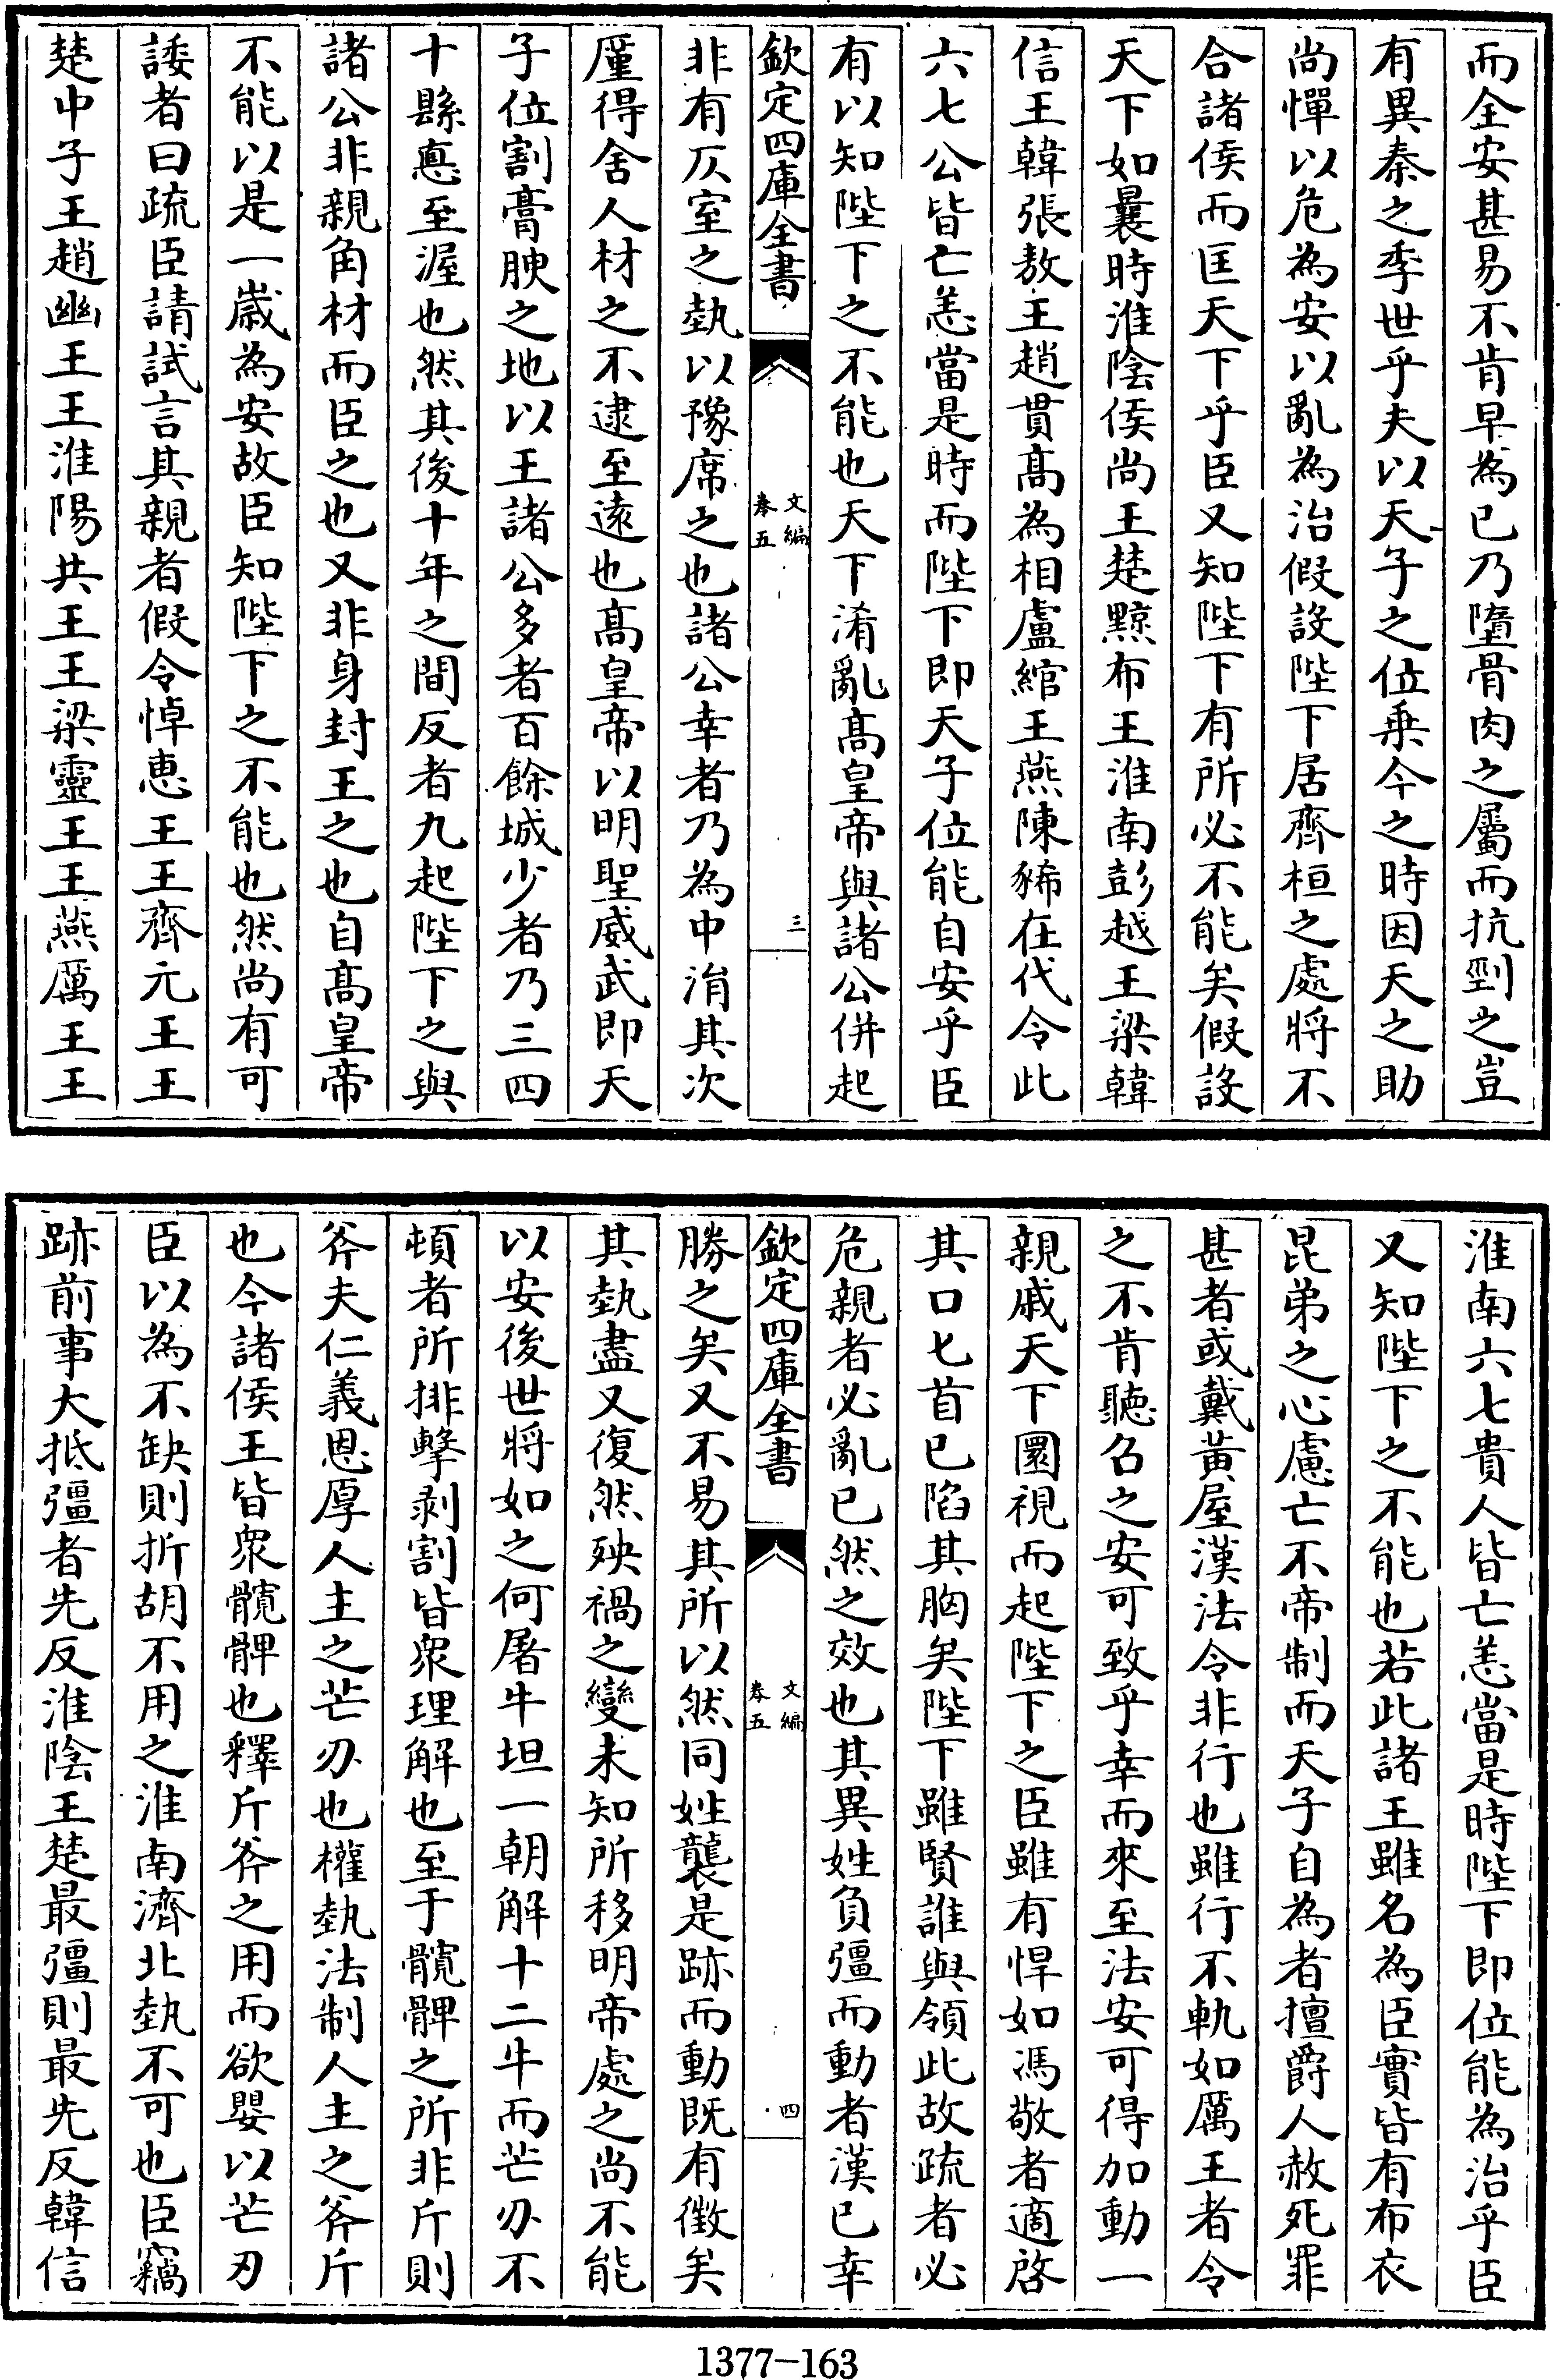 而全安甚易不肯早為已乃墮骨肉之屬而抗剄之豈
有異秦之季世乎夫以天子之位乗今之時因天之助
尚憚以危為安以亂為治假設陛下居齊桓之處將不
合諸侯而匡天下乎臣又知陛下有所必不能矣假設
天下如曩時淮隂侯尚王楚黥布王淮南彭越王梁韓
信王韓張敖王趙貫髙為相盧綰王燕陳豨在代令此
六七公皆亡恙當是時而陛下即天子位能自安乎臣
有以知陛下之不能也天下淆亂髙皇帝與諸公併起
欽定四庫全書
文編
卷五
三
非有仄室之埶以豫席之也諸公幸者乃為中涓其次
厪得舍人材之不逮至遠也髙皇帝以明聖威武即天
子位割膏腴之地以王諸公多者百餘城少者乃三四
十縣悳至渥也然其後十年之間反者九起陛下之與
諸公非親角材而臣之也又非身封王之也自髙皇帝
不能以是一歲為安故臣知陛下之不能也然尚有可
諉者曰疏臣請試言其親者假令悼惠王王齊元王王
楚中子王趙幽王王淮陽共王王梁靈王王燕厲王王
淮南六七貴人皆亡恙當是時陛下即位能為治乎臣
又知陛下之不能也若此諸王雖名為臣實皆有布衣
昆弟之心慮亡不帝制而天子自為者擅爵人赦死罪
甚者或戴黃屋漢法令非行也雖行不軌如厲王者令
之不肯聽召之安可致乎幸而來至法安可得加動一
親戚天下圜視而起陛下之臣雖有悍如馮敬者適啓
其口匕首已陷其胸矣陛下雖賢誰與領此故疏者必
危親者必亂已然之效也其異姓負彊而動者漢已幸
欽定四庫全書
文編
卷五
四
勝之矣又不易其所以然同姓襲是跡而動既有徴矣
其埶盡又復然殃禍之變未知所移明帝處之尚不能
以安後世將如之何屠牛坦一朝解十二牛而芒刃不
頓者所排擊剥割皆衆理解也至于髖髀之所非斤則
斧夫仁義恩厚人主之芒刃也權埶法制人主之斧斤
也今諸侯王皆衆髖髀也釋斤斧之用而欲嬰以芒刃
臣以為不缺則折胡不用之淮南濟北埶不可也臣竊
跡前事大抵彊者先反淮隂王楚最彊則最先反韓信
1377-163